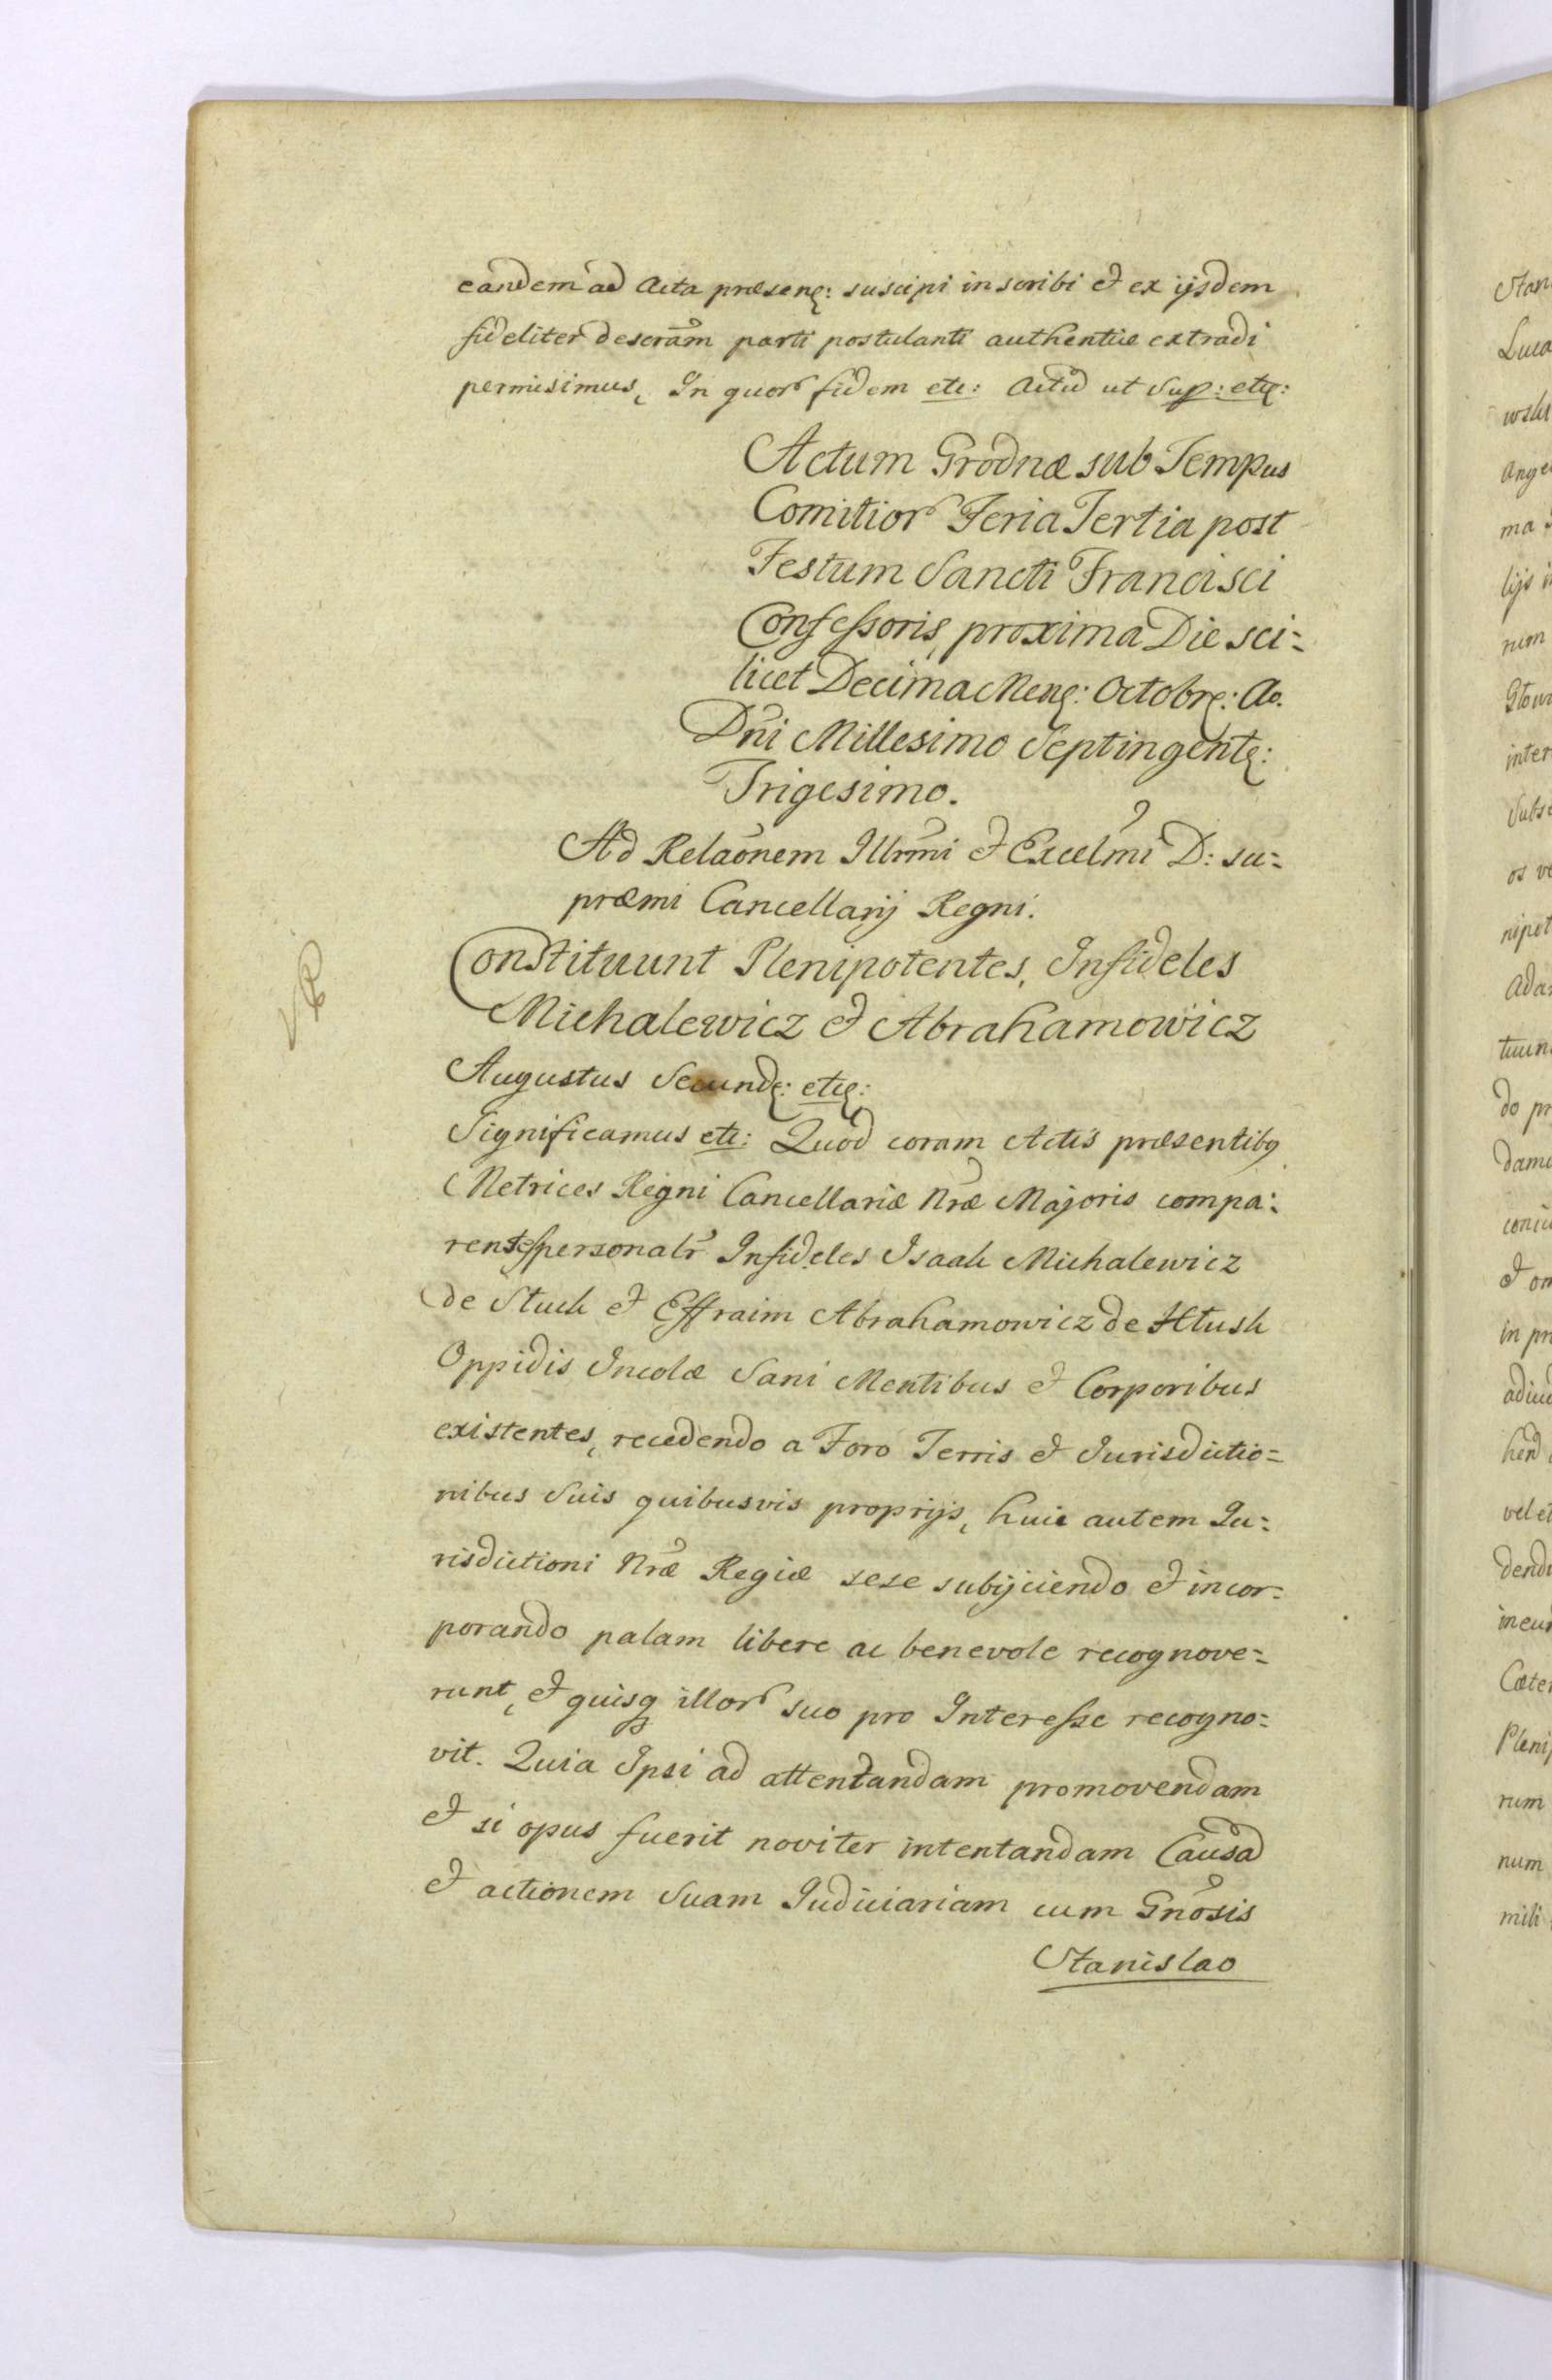 eandem ad Acta præsenꝭ: suscipi inscribi et ex ijsdem
fideliter descrãm parti postulanti authentice extradi
permisimus, In quorʳ fidem etc: Actũ ut Sup: etcꝭ:
Actum Grodnæ sub Tempus
Comitiorʳ Feria Tertia post
Festum Sancti Francisci
Confessoris, proxima Die sci=
licet Decima Menꝭ: Octobrꝭ: Ao.
Dñi Millesimo Septingentꝭ:
Trigesimo.
Ad Relaõnem Illrmi et Excelmi D: su=
præmi Cancellarij Regni.
Constituunt Plenipotentes, Infideles
Michalewicz et Abrahamowicz
Augustus Secundꝭ: etcꝭ:
Significamus etc: Quod coram Actis præsentibꝰ
Metrices Regni Cancellariæ Nræ Majoris compa:
rentes personalr Infideles Isaak Michalewicz
de Słuck et Effraim Abrahamowicz de Hłusk
Oppidis Incolæ Sani Mentibus et Corporibus
existentes, recedendo a Foro Terris et Jurisdictio=
nibus Suis quibusvis proprijs, huic autem Ju:
risdictioni Nræ Regiæ sese subijciendo et incor=
porando palam libere ac benevole recognove=
runt, et quisq illorʳ suo pro Interesse recogno=
vit. Quia Ipsi ad attentandam promovendam
et si opus fuerit noviter intentandam Causã
et actionem Suam Judiciariam cum Gnosis
Stanislao